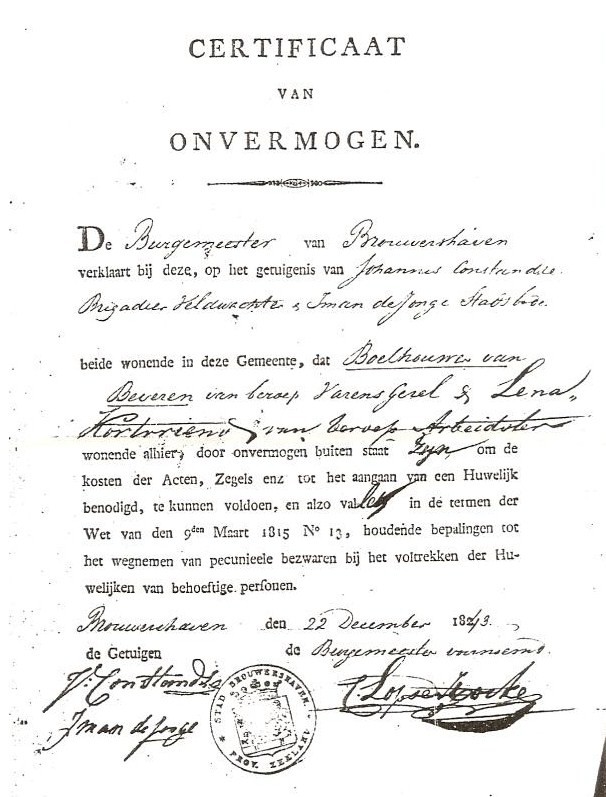 CERTIFICAAT
VAN
ONVERMOGEN.
De Burgemeester van Brouwershaven
verklaart bij deze, op het getuigenis van Johannes Constandse
Brigadier Veldwachter & Iman de Jonge Stadsbode
beide wonende in deze Gemeente, dat Boelhouwer van
Beveren van beroep Varensgezel & Lena
Kortvriend, van beroep Arbeidster
wonende alhier, door onvermogen buiten staat zyn om de
kosten der Acten, Zegels enz tot het aangaan van een Huwelijk
benodigd, te kunnen voldoen, en alzo vallen in de termen der
Wet van den 9den Maart 1815 No 13, houdende bepalingen tot
het wegnemen van pecunieele bezwaren bij het voltrekken der Hu-
welijken van behoeftige personen.
Brouwershaven den 22 December 1843.
de Getuigen de Burgemeester voornoemd
J. Constandse
Iman de Jonge
* STAD BROUWERSHAVEN. * PROV. ZEELAND